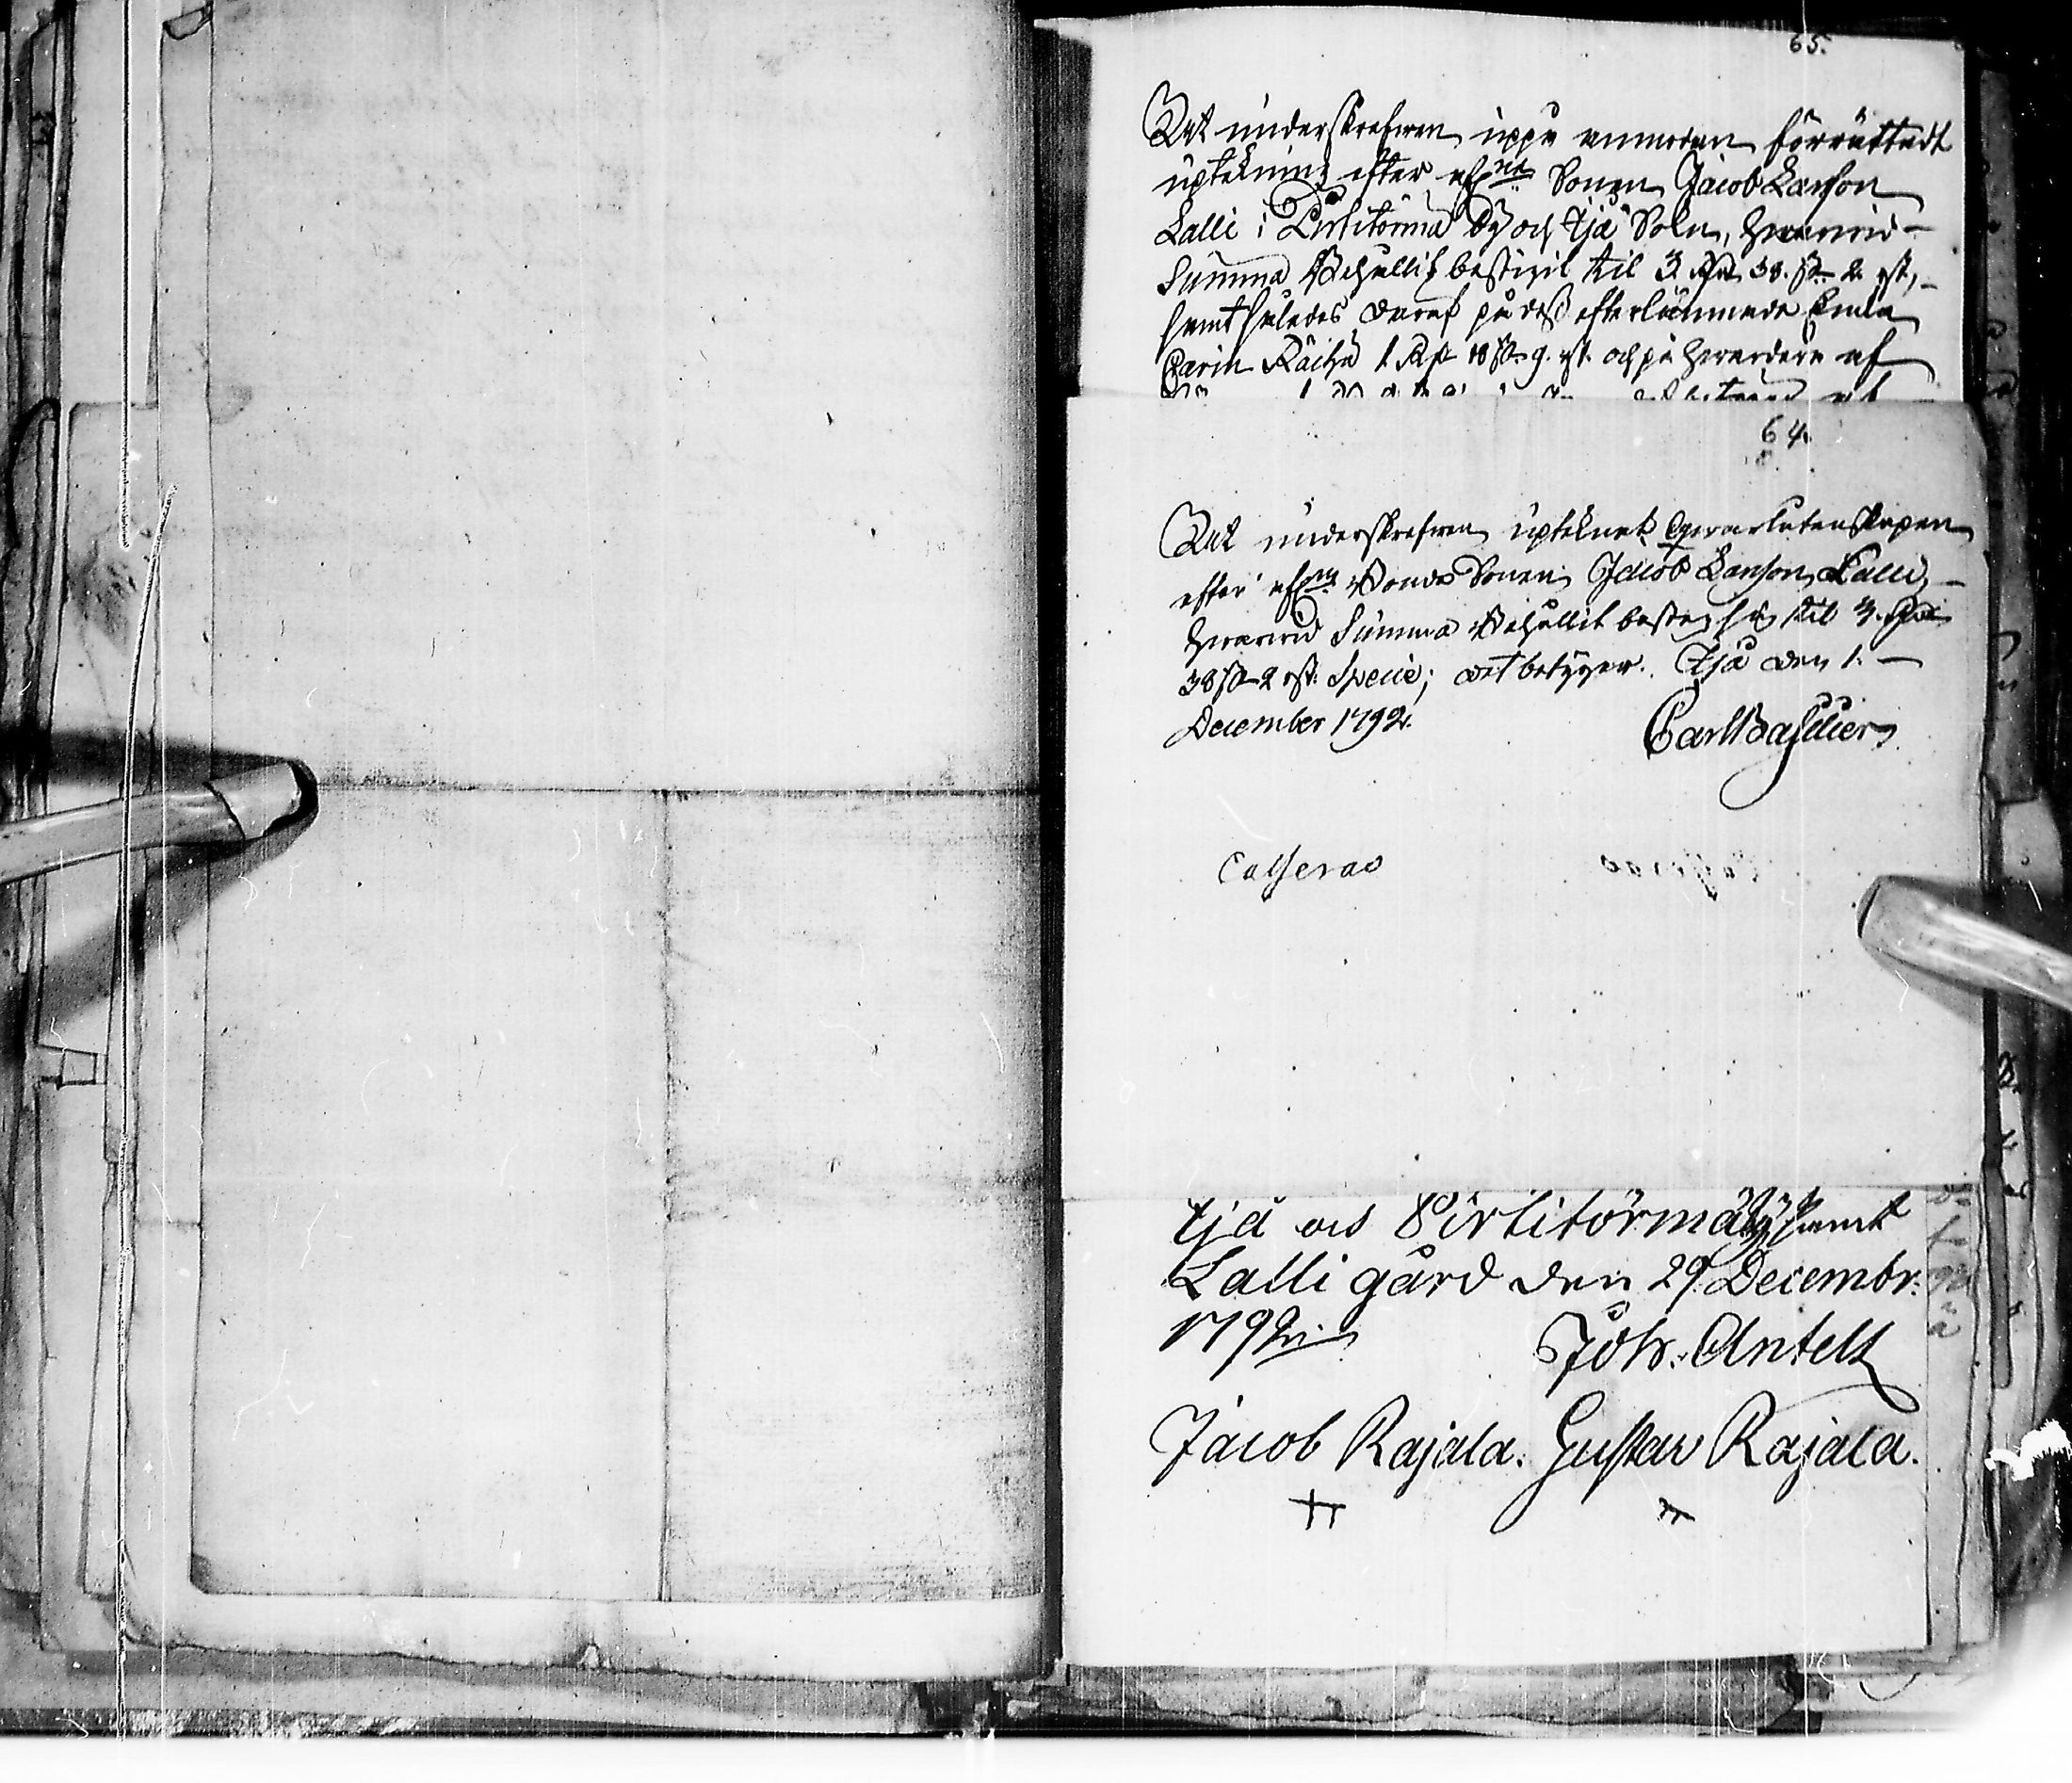 65.
At underskrefwen uppå anmodan förrättadt
uptekning efter afl:ne Sonen Jacob Larsson
Lalli i Pirtitörmä By och Ilja Sokn, hwarvid
Summa Behållit bestigit til 3 Rd 38. sk. 2 rst,
samt således deraf på dess efterlämnade Enka
Carin Räihä 1 Rd 18 sk. 9. rst. och på hwardera af
64.
At underskrefwen uptecknat Qwarlåtenskapen
efter afl:ne Bonde Sonen Jacob Larsson Lalli,
hwarvid Summa Behållit besteg sig til 3. Rd
38 sk 2 rst. Specie; det betygar. Iljä den 1.
December 1792.
Carl Bassilier
Casseras
Iljä och Pirtitörmä by samt
Lalli gård den 29. Decembr.
1792
Joh. Antell
Jacob Rajala. Gustav Rajala.